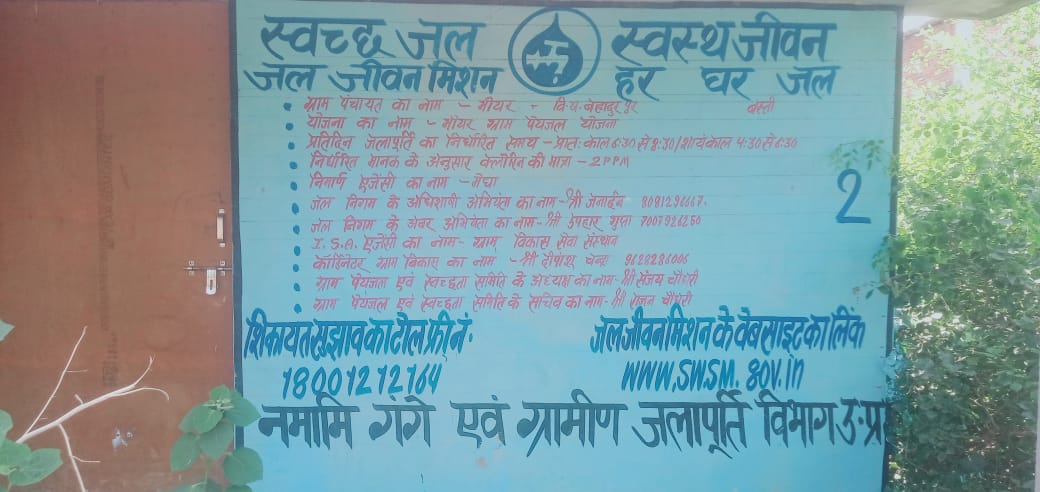 स्वच्छ जल स्वस्थ जीवन
जल जीवन मिशन हर घर जल
ग्राम पंचायत का नाम - मीयर - वि.ख.बहादुर पुर बस्ती
योजना का नाम - मीयर ग्राम पेयजल योजना
प्रतिदिन जलापूर्ति का निर्धारित समय - प्रातः काल 6:30 से 8:30/शायंकाल 4:30 से 6:30
निर्धारित मानक के अनुसार क्लोरिन की मात्रा - 2 PPM
निर्माण एजेंसी का नाम - मेघा
जल निगम के अधिशाषी अभियंता का नाम - श्री जनार्दन
जल निगम के अवर अभियंता का नाम - श्री उपहार गुप्ता 7007926250
I.S.A. एजेंसी का नाम - ग्राम विकास सेवा संस्थान
कॉर्डिनेटर ग्राम विकास का नाम - श्री चन्द्र 9628286006
ग्राम पेयजल एवं स्वच्छता समिति के अध्यक्ष का नाम - श्री संजय चौधरी
ग्राम पेयजल एवं स्वच्छता समिति के सचिव का नाम - श्री राजन चौधरी
2
शिकायत सुझाव का टोल फ्री नं. जल जीवन मिशन के वेबसाइट का लिंक
18001212164 WWW.SWSM.gov.in
नमामि गंगे एवं ग्रामीण जलापूर्ति विभाग उ.प्र